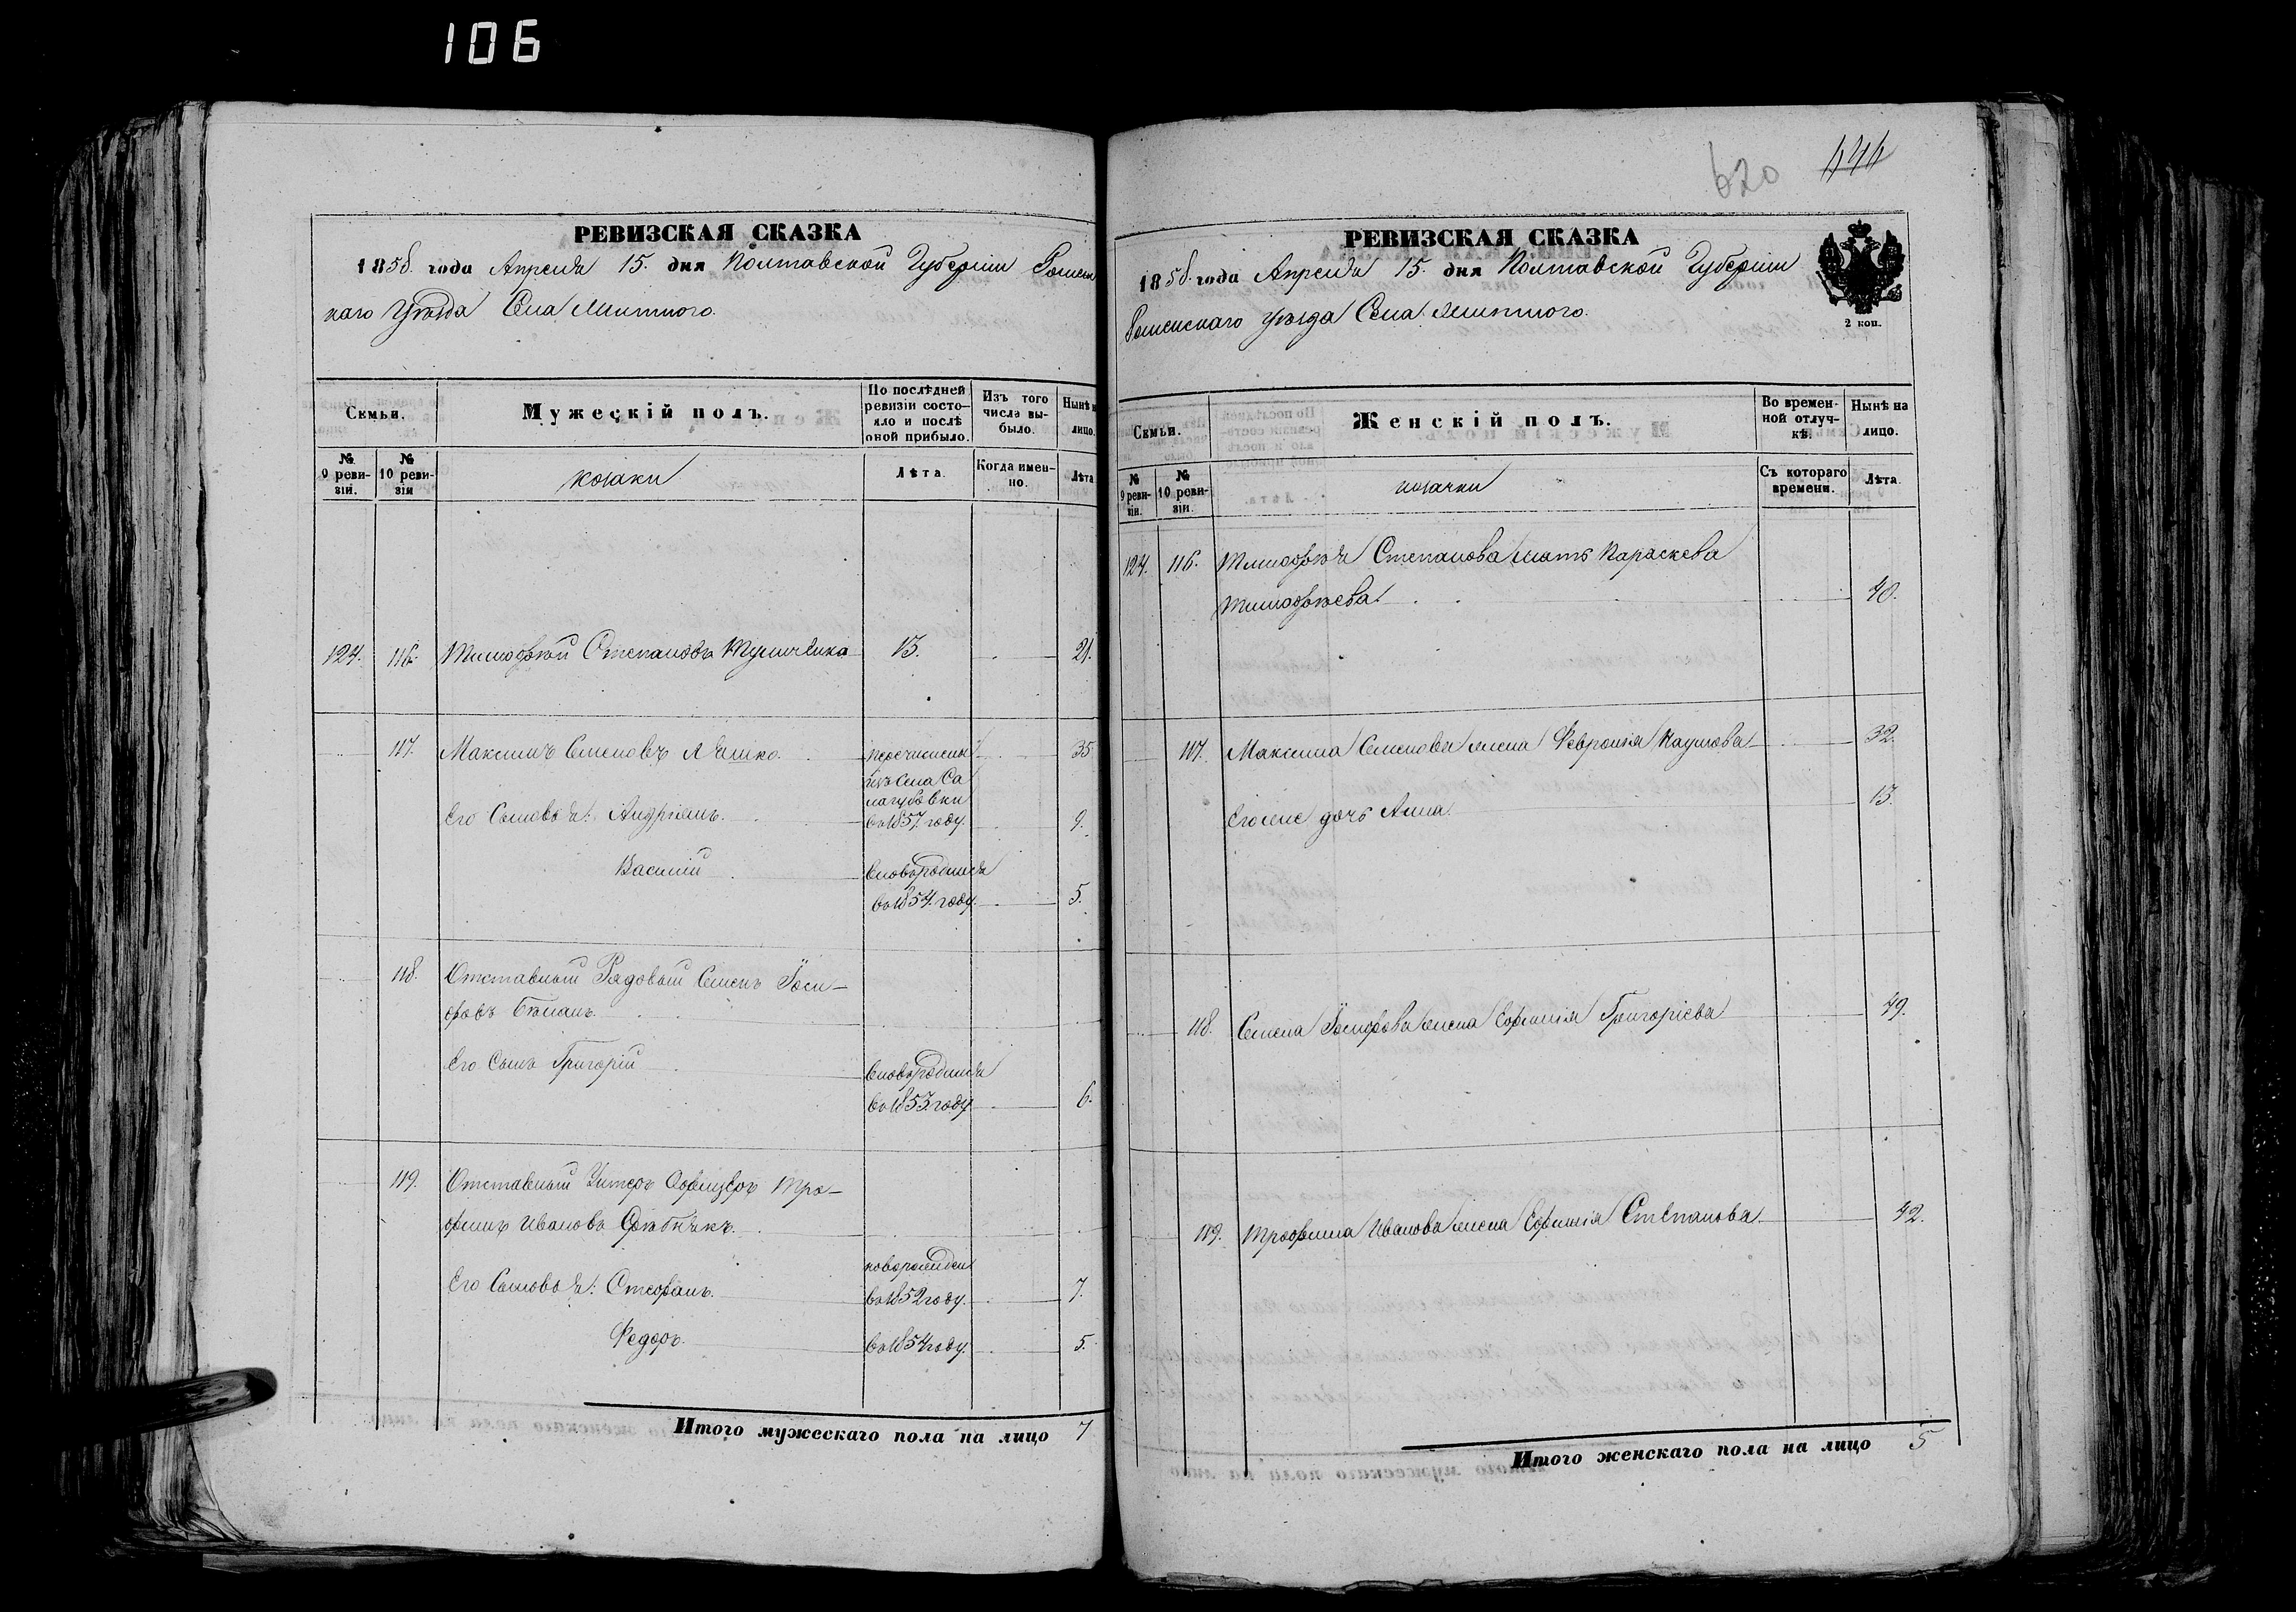 106
РЕВИЗСКАЯ СКАЗКА
1858. года Апреля 15. дня Полтавской Губерніи Ромен
каго Уѣзда Села
Семьи.
Мужескій полъ.
По послѣдней
ревизіи состо-
яло и послѣ
оной прибыло.
Изъ того
числа вы-
было.
Нынѣ н
лицо.
№
9 реви-
зіи.
№
10 реви-
зіи
козаки
Лѣта.
Когда имен-
но.
Лѣта
124. 116. Тимофѣй Степановъ 13. 21.
117. Максимъ Семеновъ Ляшко. перечислены 35
изъ Села Са
Его Сыновья: Андріянъ. во 1857. году. 9.
Василій вновородился
во 1854. году. 5.
118. Отставный Рядовый Семенъ Іоси-
фовъ
Его Сынъ Григорій вновородился
во 1853. году 6.
119. Отставный Унтеръ Офицеръ Тро-
фимъ Ивановъ
новорожден
Его Сыновья: Стефанъ. во 1852 году. 7.
Федоръ. во 1854 году. 5.
Итого мужескаго пола на лицо 7
620
РЕВИЗСКАЯ СКАЗКА
1858. года Апреля 15. дня Полтавской Губерніи
Роменскаго уѣзда Села
2 коп.
Семьи.
Женскій полъ.
Во времен-
ной отлуч-
кѣ.
Нынѣ на
лицо.
№
9 реви-
зіи.
№
10 реви-
зіи.
козачки
Съ котораго
времени.
Лѣта.
124. 116. Тимофѣя Степанова мать Параскева
Тимофѣева 40.
117. Максима Семенова жена Февронія Наумова 32.
Егоже дочь Анна. 13.
118. Семена Іосифова жена Евфимія Григоріева 49.
119. Трофима Иванова жена Евфимія Степанова 42.
Итого женскаго пола на лицо 5